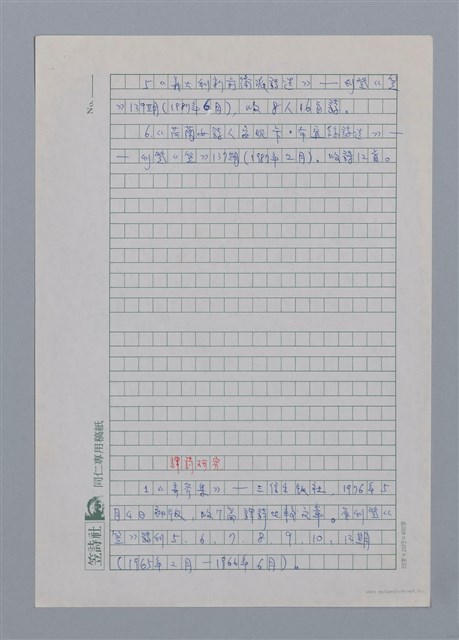 No.
5《義大利新前衛派詩選》——刊登《笠
》139期(1987年6月),收8人16首詩。
6.《荷蘭女詩人 詩選》—
—刊登《笠》139期(1987年2月)。收詩12首。
譯詩研究
1《 集》——三信出版社,1976年5
月4日初版,收7篇譯詩比較文章。 刊登《
笠》詩刊5、6、7、8、9、10、13期
(1965年2月—1966年6月)。
笠詩社
同仁專用稿紙